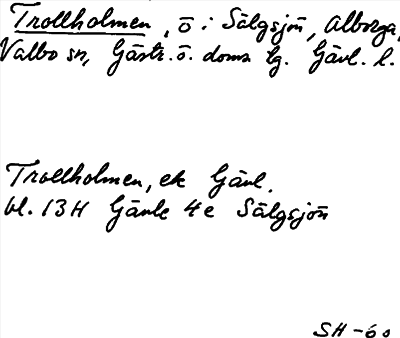 Trollholmen, ö i Sälgsjön, Alborga,
Valbo sn, Gästr. ö. doms lg. Gävl. l.
Trollholmen, ek Gävl.
bl. 13H Gävle 4e Sälgsjön
SH-60